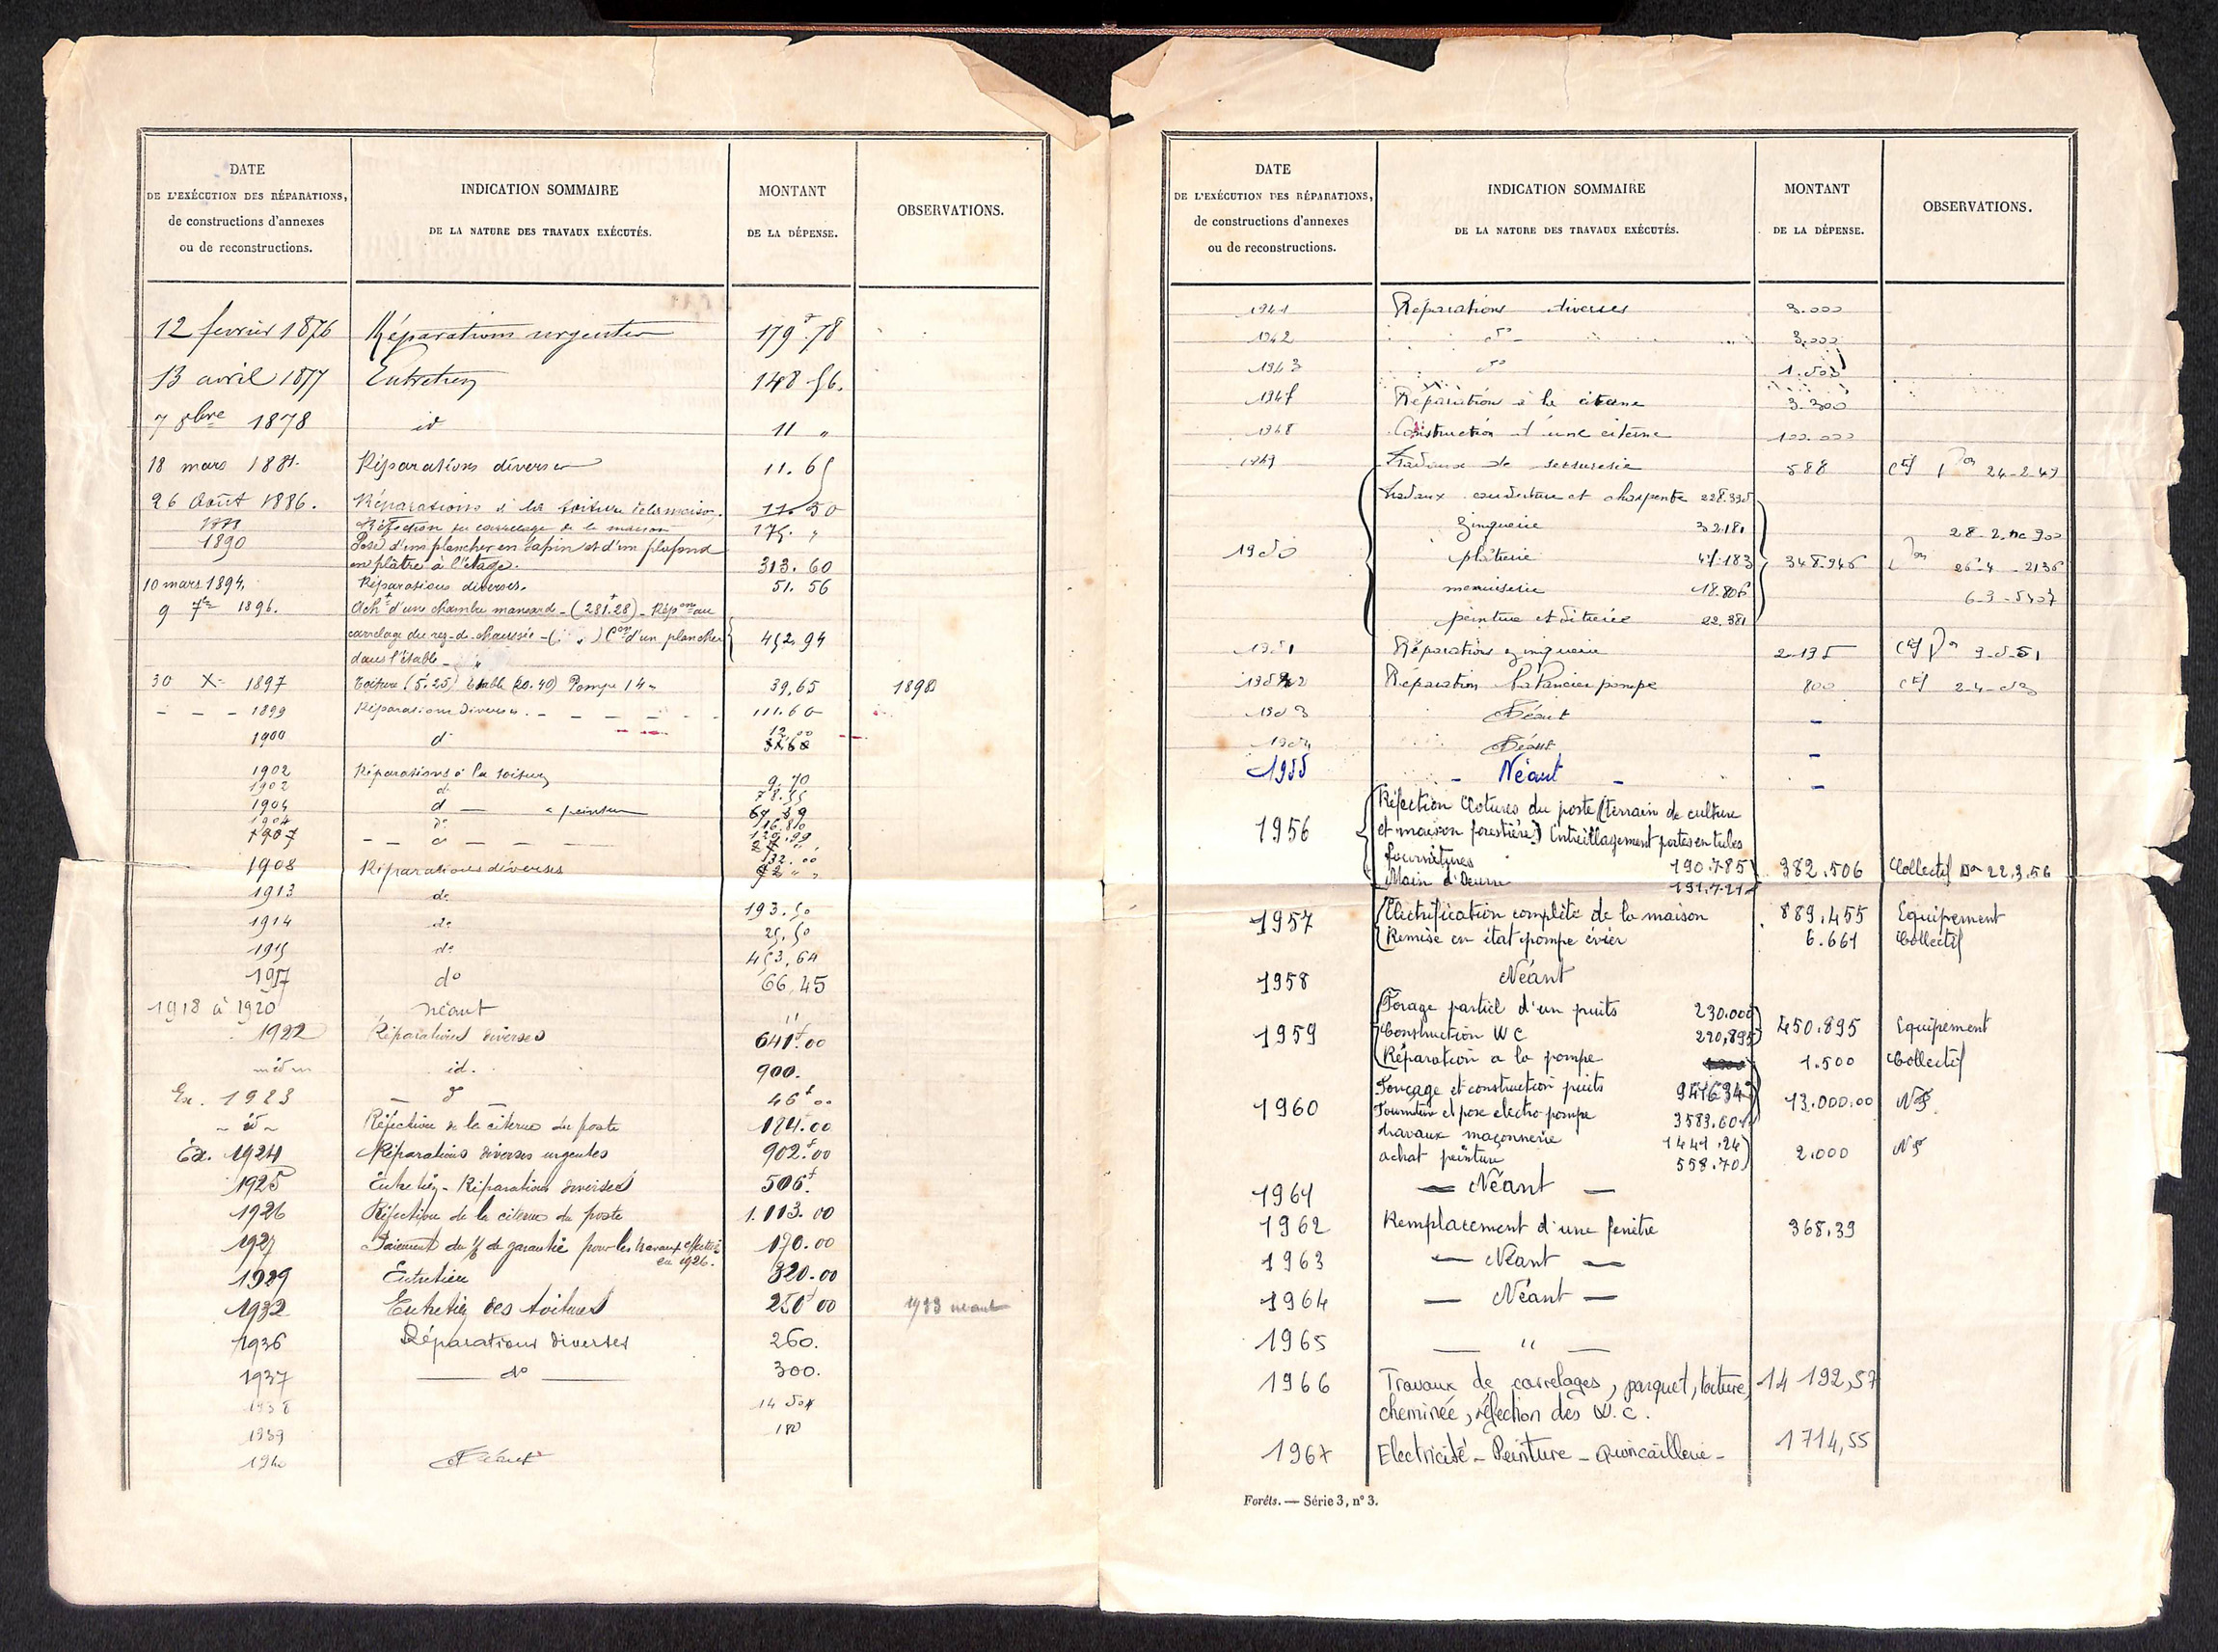 DATE
DE L'EXÉCUTION DES RÉPARATIONS,
de constructions d'annexes
ou de reconstructions.
INDICATION SOMMAIRE
DE LA NATURE DES TRAVAUX EXÉCUTÉS.
MONTANT
DE LA DÉPENSE.
OBSERVATIONS.
12 fevrier 1876 Réparations urgentes 179f.78
13 avril 1877 Entretien 148 56.
7 8bre 1878 id 11 "
18 mars 1881. Réparations diverses 11.65
26 Août 1886. Réparations à la toiture de la maison. 11.50
Réfection du carrelage de la maison 175. "
1890 Pose d'un plancher en sapin et d'un plafond
en plâtre à l'étage. 313.60
10 mars 1894. Réparations diverses. 51.56
9 7re 1896. Acht d'une chambre mansard - (281.28) - Répon au
carrelage du rez-d-chaussée - ( " ) Con d'un plancher 452.94
dans l'étable - "
30 X- 1897 Toiture (5.25) Etable (20.40) Pompe 14 " 39,65 1898
- - - 1899 Réparations diverses. - - - - 111.60
1900 d° 12,00
1902 Réparations à la toiture 9.70
1902 d° 78.55
1904 d° — " peinture
1904 d° 116.80
1907 - - d° - - 129.99
132.00
1908 Réparations diverses
1913 do 193.50
1914 do 25,50
1915 do 453,64
1917 do 66,45
1918 à 1920 néant "
1922 Réparations diverses 641f.00
idem id. 900.
Ex. 1923 — d° 46f 00
- id - Réfection de la citerne du poste 184.00
Ex. 1924 Réparations diverses urgentes 902f.00
1925 Entretien - Réparations diverses 506f.
1926 Réfection de la citerne du poste 1.113.00
1927 Paiement du 1/ de garantie pour les travaux effectués
en 1926. 170.00
1929 Entretien 320.00
1932 Entretien des toitures 250f 00 1933 néant
1936 Réparations diverses 260.
1937 — do — 300.
1938 14 50
1939 180
1940 Néant
DATE
DE L'EXÉCUTION DES RÉPARATIONS,
de constructions d'annexes
ou de reconstructions.
INDICATION SOMMAIRE
DE LA NATURE DES TRAVAUX EXÉCUTÉS.
MONTANT
DE LA DÉPENSE.
OBSERVATIONS.
1941 Réparations diverses 3.000
1942 d° 3.000
1943 d° 1.503
1947 Réparation à la citerne 3.300
1948 Construction d'une citerne 100.000
1949 Travaux de serrurerie 588 Ctf Don 24-2-49
travaux couverture et charpente 228.395
zinguerie 32.181 28-2. nc 900
1950 plâtrerie 47.183 348.946 Don 26-4-2136
menuiserie 18.806 6-3-5407
peinture et vitrerie 22.381
1951 Réparations zinguerie 2.195 Ctf Don 9-5-51
1952 Réparation balancier pompe 800 Ctf 2-4-52
1953 Néant -
1954 Néant -
1955 - Néant - -
Réfection clotures du poste (terrain de culture
1956 et maison forestière) Entreillagement portes en tubes
fournitures 190.785
Main d'Œuvre 191.721 382.506 Collectif Don 22.3.56
1957 Electrification complète de la maison 889.455 Equipement
Remise en état pompe évier 6.661 Collectif
1958 Néant
Forage partiel d'un puits 230.000
1959 Construction W C 220,895 450.895 Equipement
Réparation a la pompe 1.500 Collectif
Fonçage et construction puits 9416.34
1960 Fourniture et pose electro-pompe 3583.60 13.000.00 NF
travaux maçonnerie 1441.24
achat peinture 558.70 2.000 NF
1961 — Néant —
1962 Remplacement d'une fenêtre 368,39
1963 — Néant —
1964 — Néant —
1965 — " —
1966 Travaux de carrelages, parquet, toiture, 14 192,57
cheminée, réfection des W.C.
1967 Electricité - Peinture - Quincaillerie - 1714,55
Forêts. — Série 3, n° 3.